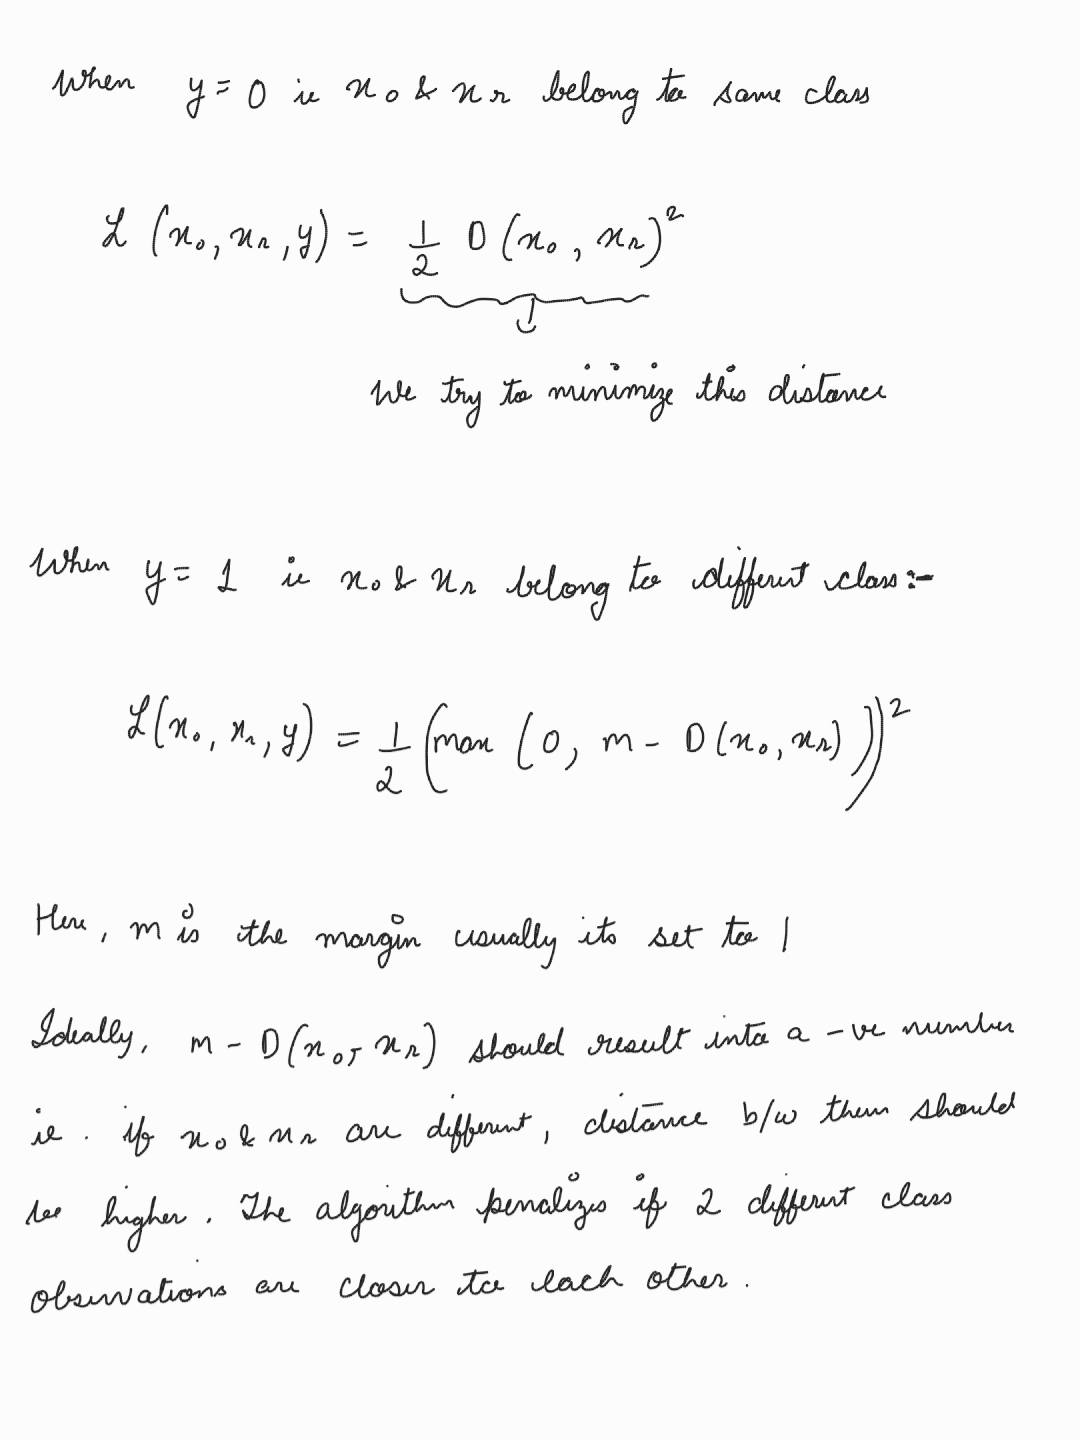 When y = 0 ie x₀ & xᵣ belong to same class
ℒ (x₀, xᵣ, y) = 1/2 D (x₀, xᵣ)²
We try to minimize this distance
When y = 1 ie x₀ & xᵣ belong to different class :-
ℒ(x₀, xᵣ, y) = 1/2 (max (0, m - D(x₀, xᵣ)))²
Here, m is the margin usually its set to 1
Ideally, m - D(x₀, xᵣ) should result into a -ve number
ie. if x₀ & xᵣ are different, distance b/w them should
be higher. The algorithm penalizes if 2 different class
observations are closer to each other.